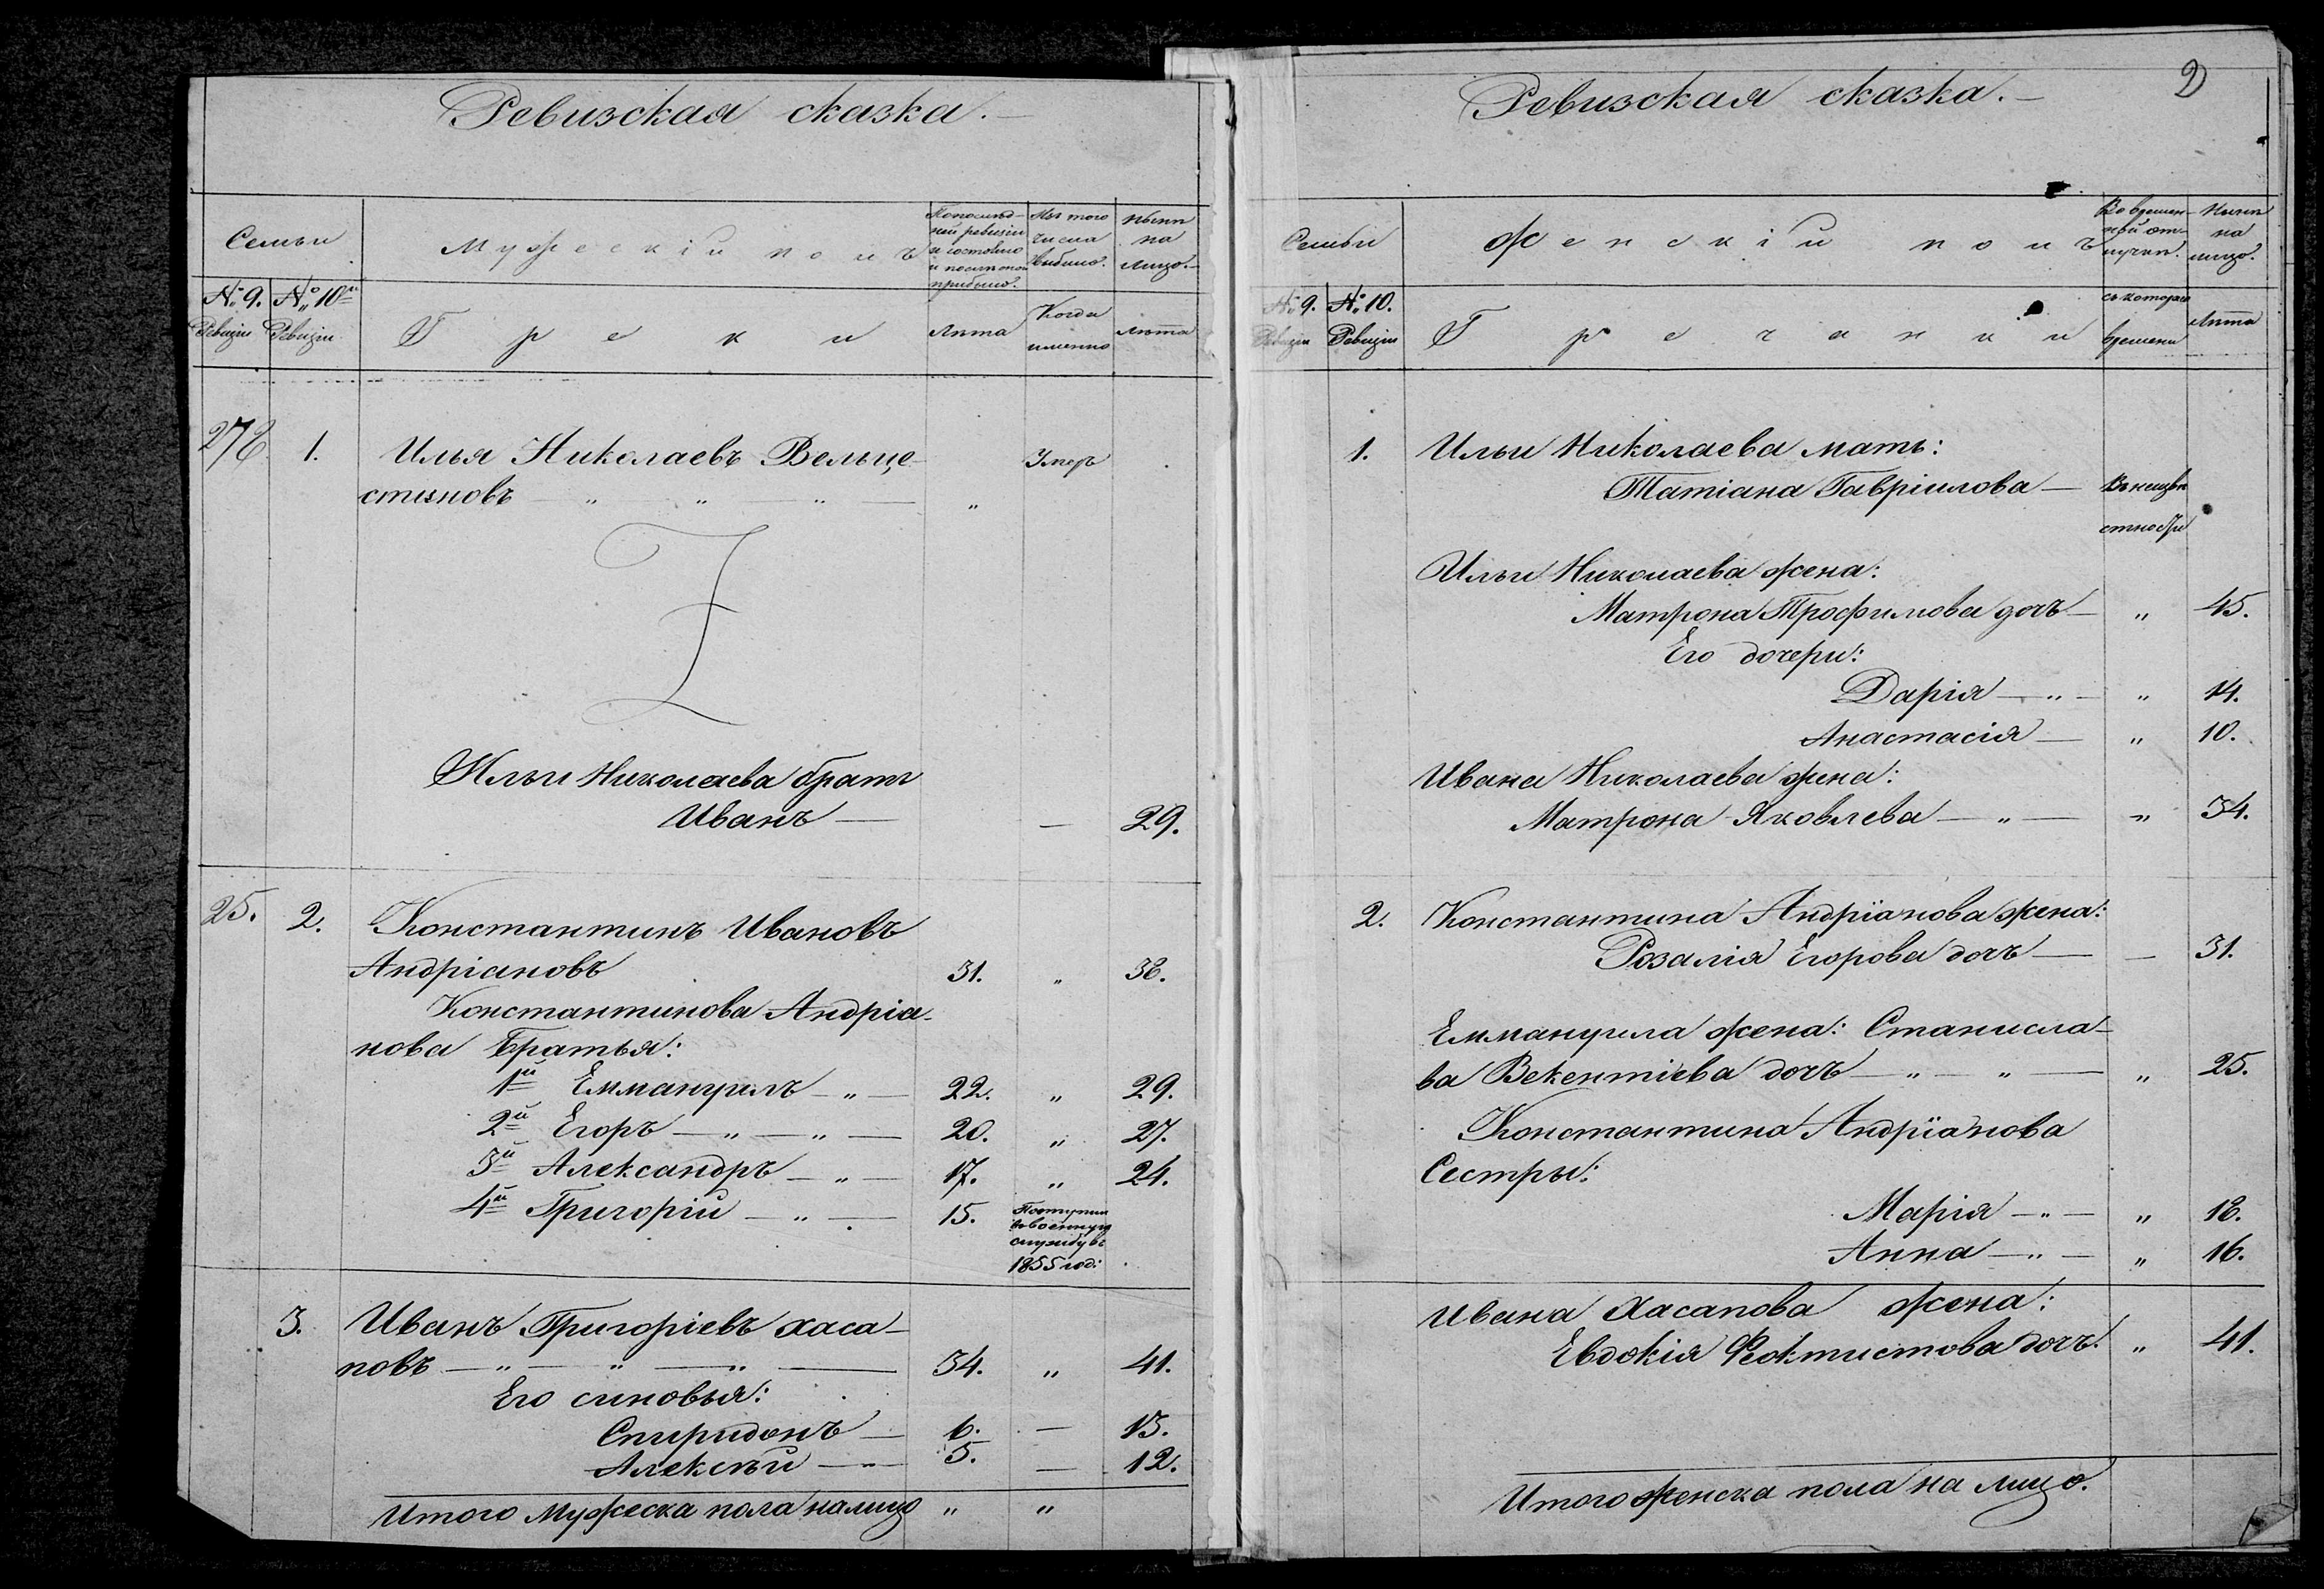 Ревизская сказка.
Семьи
Мужескій полъ
По послѣд-
ней ревизіи
и состояло
и послѣ оной
прибыло.
Изъ того
числа
выбыло.
Нынѣ
на
лицо.
№ 9.
Ревизіи
№ 10й
Ревизіи
Греки
Лѣта
Когда
именно
Лѣта
278 1. Илья Николаевъ Вельце-
стиновъ — „ — „ — „ — „ Умеръ
Ильи Николаева братъ
Иванъ — — 29.
25. 2. Константинъ Ивановъ
Андріановъ 31. „ 38.
Константинова Андріа-
нова Братья:
1й Еммануилъ — „ — 22. „ 29.
2й Егоръ — „ — „ — 20. „ 27.
3й Александръ — „ — 17. „ 24.
4й Григорій — „ — 15. Поступил
въ военную
службу въ
1855 год:
3. Иванъ Григоріевъ Хаса-
повъ — „ — „ — „ — 34. „ 41.
Его сыновья:
Спиридонъ — 6. — 13.
Алексѣй — „ — 5. — 12.
Итого мужеска пола на лицо „ „
Ревизская сказка. — 2
Семьи
Женскій полъ
Во времен-
ной от-
лучкѣ.
Нынѣ
на
лицо.
№ 9.
Ревизіи
№ 10.
Ревизіи
Гречанки
съ котораго
времени
Лѣта
1. Ильи Николаева мать:
Татіана Гавріилова — Въ неизвѣ
стности
Ильи Николаева жена:
Матрона Трофимова дочь — „ 45.
Его дочери:
Дарія — „ — „ 14.
Анастасія — „ 10.
Ивана Николаева жена:
Матрона Яковлева — „ — „ 34.
2. Константина Андріанова жена:
Розалія Егорова дочь — — 31.
Еммануила жена: Станисла-
ва Векентіева дочь — „ — „ — „ 25.
Константина Андріанова
Сестры:
Марія — „ — „ 18.
Анна — „ — „ 16.
Ивана Хасапова жена:
Евдокія Феоктистова дочь. „ 41.
Итого женска пола на лицо.